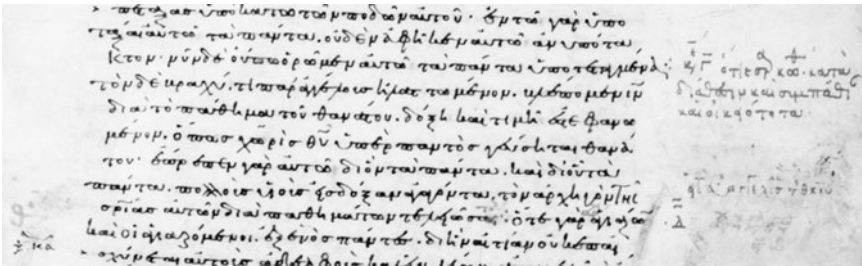 πέταξας ὑποκάτω τῶν ποδῶν αὐτοῦ· ἐν τῶ γὰρ ὑπο
τάξαι αὐτῶ τὰ πάντα. οὐδὲν ἀφῆκεν αὐτῶ ἀνυπότα
κτον· νῦν δὲ οὔπω ὁρῶμεν αὐτῶ τὰ πάντα ὑποτεταγμένα:
τὸν δὲ βραχύ τι παρ' ἀγγέλους ἠλαττωμένον. βλέπομεν ι̅ν̅
διὰ τὸ πάθημα τοῦ θανάτου. δόξη καὶ τιμῆ ἐστεφανω
μένον. ὅπως χωρὶς θ̅υ̅ ὑπὲρ παντὸς γεύσηται θανά
του· ἔπρεπεν γὰρ αὐτῶ δι' ὃν τὰ πάντα. καὶ δι' οὗ τὰ
πάντα. πολλοὺς υἱοὺς εἰς δόξαν ἀγαγόντα. τὸν ἀρχηγὸν τῆς
σ̅ρ̅ίας αὐτῶν διὰ παθημάτων τελειῶσαι· ὅ τε γὰρ ἁγιάζων
καὶ οἱ ἁγιαζόμενοι. ἐξ ἑνὸς πάντες· δι' ἣν αἰτίαν οὐκ ἐπαι
σχύνεται αὐτοὺς ἀδελφοὺς
κατὰ
διάθεσιν καὶ
καὶ